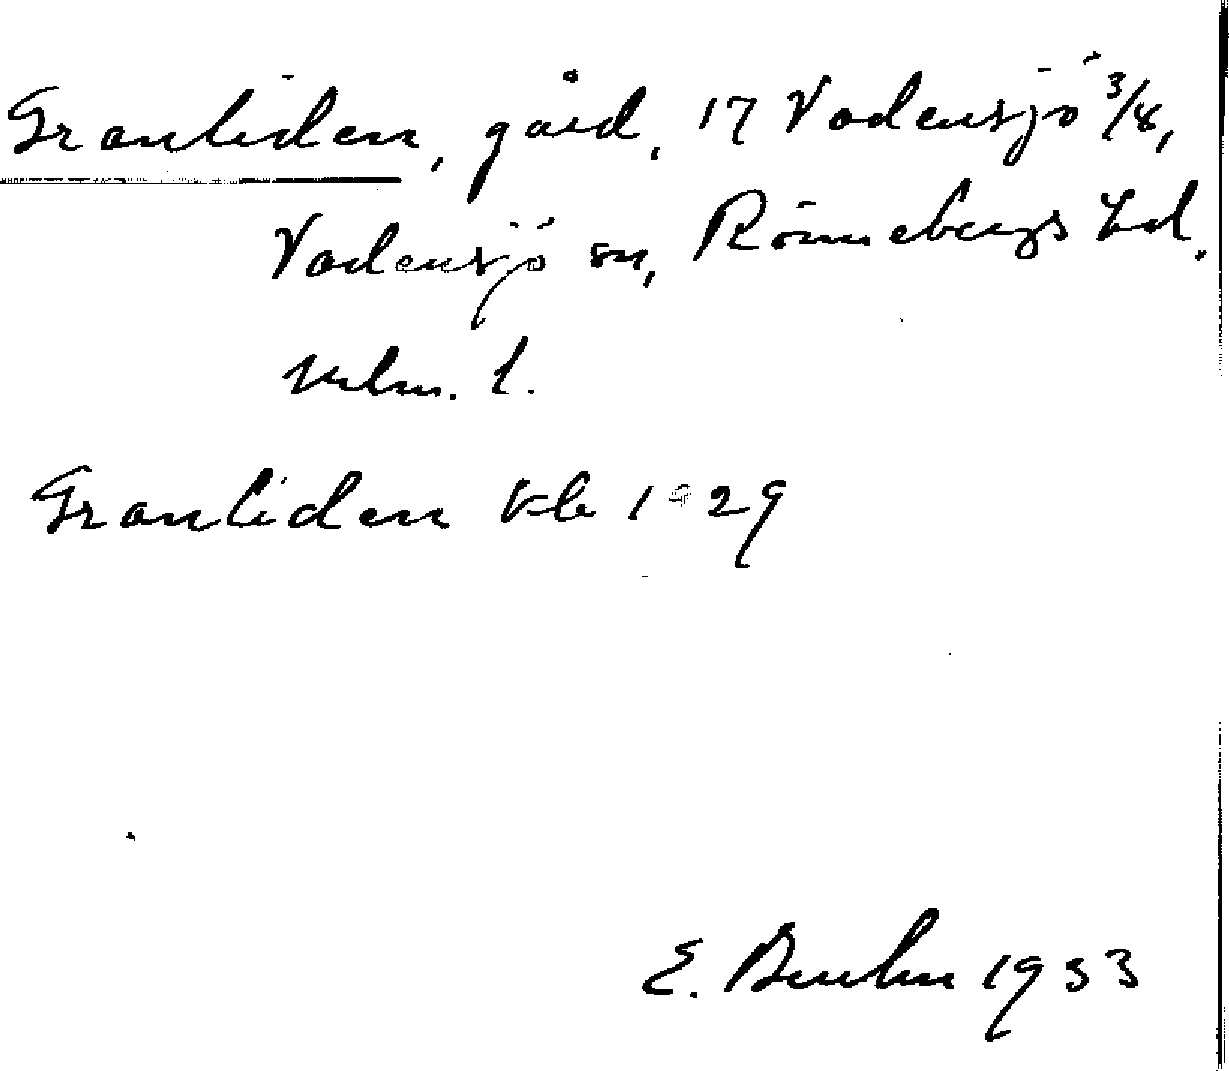 Granliden, gård, 17 Vadensjö 3/8,
Vadensjö sn, Rönnebergs hd.
Mlm. l.
Granliden Kb 1929
E. 1933